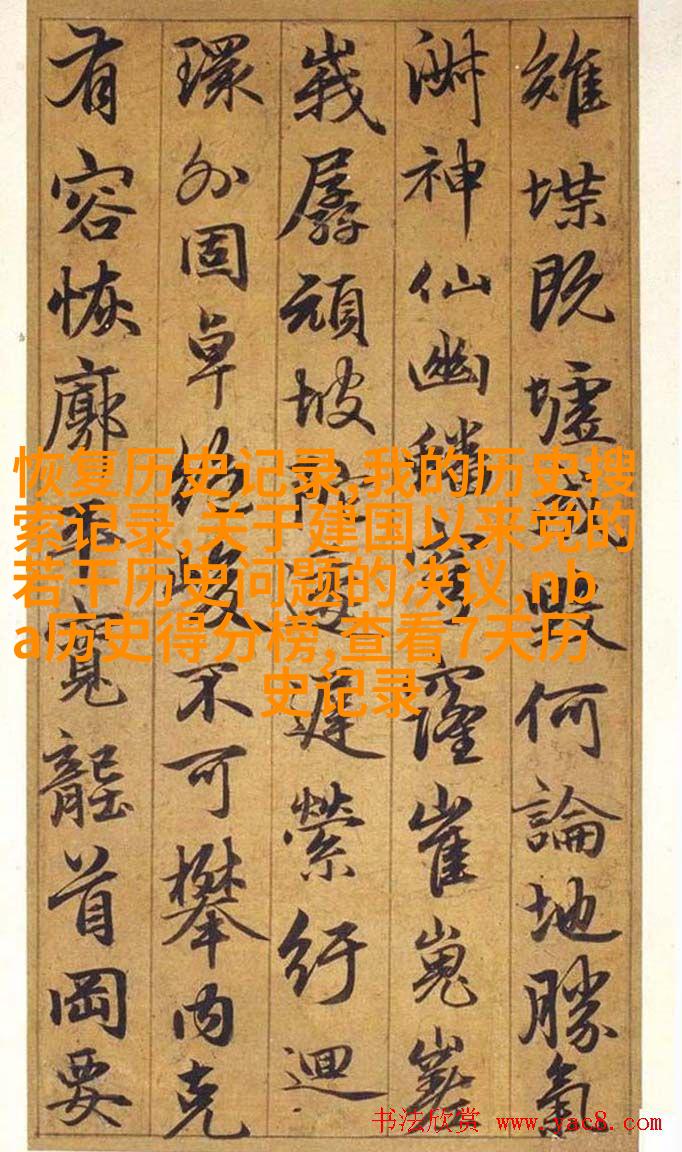 雉堞既墟毀何論地勝氣
神仙幽崔嵬
峩孱頑坡縈紆迴
環外固卓峻不可攀内克
有容恢廓平寬首岡要
恢复历史记录,我的历史搜
索记录,关于建国以来党的
若干历史问题的决议,nb
a历史得分榜,查看7天历
史记录
书法欣赏 www.yac8.com